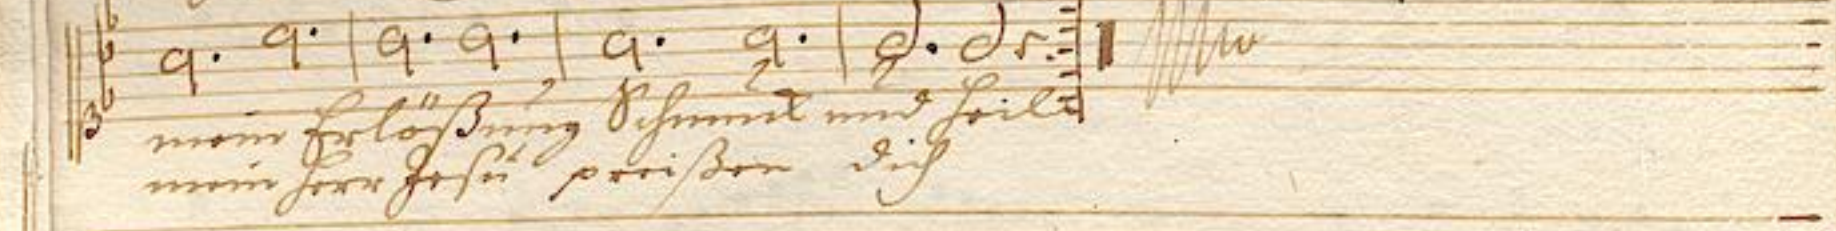 mein Erlößung Schmuck und Heil
mein Herr Jesu preißen dich